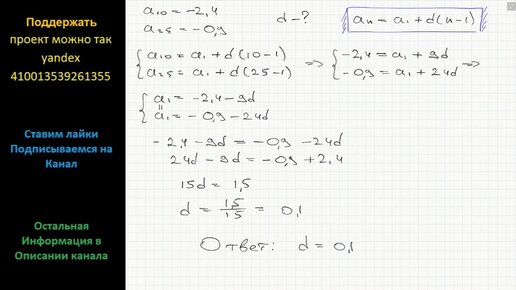 Поддержать
проект можно так
yandex
410013539261355
Ставим лайки
Подписываемся на
Канал
Остальная
Информация в
Описании канала
a₁₀ = -2,4
a₂₅ = -0,9
d - ?
aₙ = a₁ + d(n-1)
{ a₁₀ = a₁ + d(10-1) => { -2,4 = a₁ + 9d
{ a₂₅ = a₁ + d(25-1) => { -0,9 = a₁ + 24d =>
{ a₁ = -2,4 - 9d
||
{ a₁ = -0,9 - 24d
-2,4 - 9d = -0,9 - 24d
24d - 9d = -0,9 + 2,4
15d = 1,5
d = 1,5/15 = 0,1
Ответ: d = 0,1